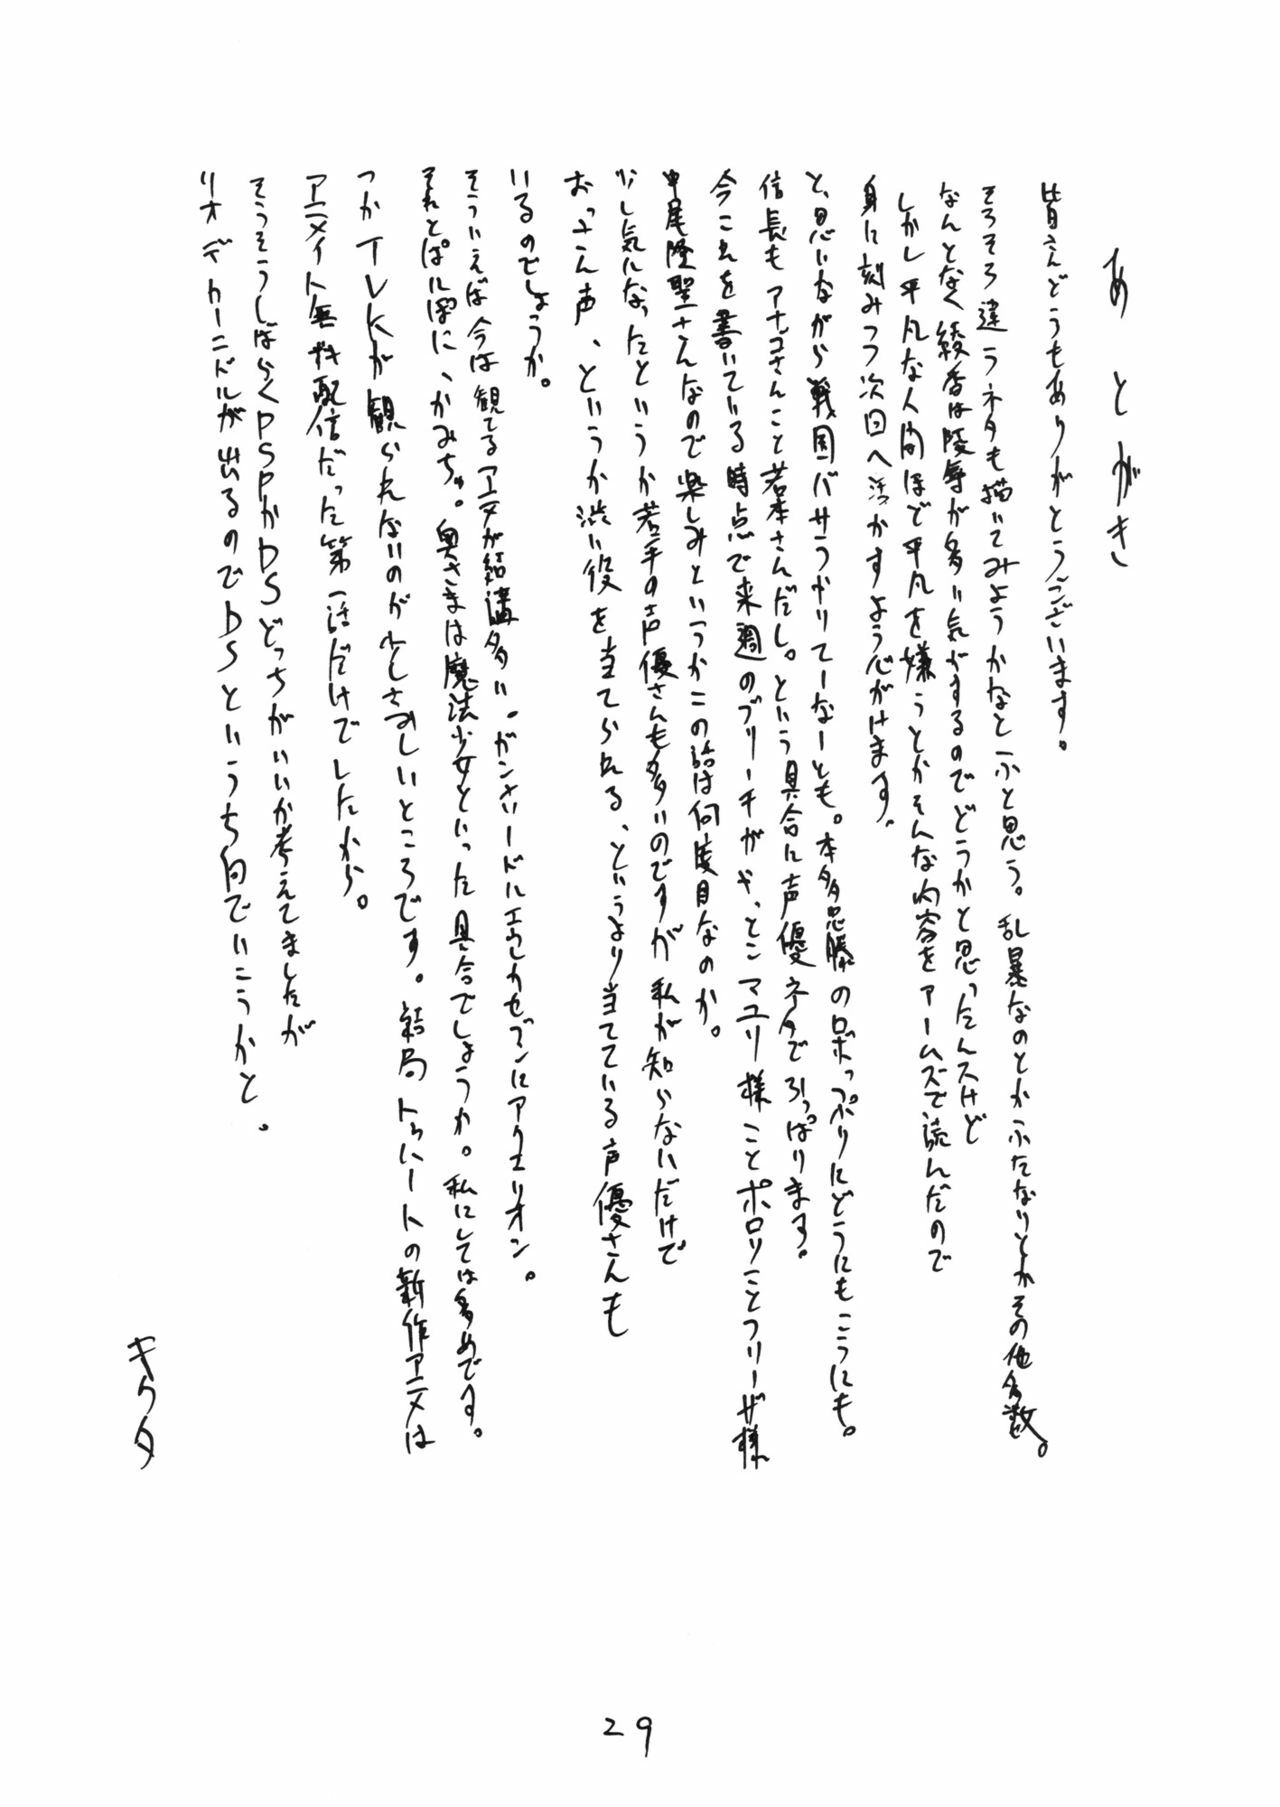 あとがき
皆さんどうもありがとうございます。
そろそろ違うネタも描いてみようかなとふと思う。乱暴なのとかふたなりとかその他多数。
なんとなく綾香は陵辱が多い気がするのでどうかと思ったんスけど
しかし平凡な人間ほど平凡を嫌うとかそんな内容をアームズで読んだので
身に刻みつつ次回へ活かすよう心がけます。
と、思いながら戦国バサラやりてーなーとも。本多忠勝のロボっぷりにどうにもこうにも。
信長もアナゴさんこと若本さんだし。という具合に声優ネタで引っぱります。
今これを書いている時点で来週のブリーチがやっとこマユリ様ことポロリことフリーザ様
中尾隆聖さんなので楽しみというかこの話は何度目なのか。
少し気になったというか若手の声優さんも多いのですが私が知らないだけで
おっさん声、というか渋い役を当てられる、というより当てている声優さんも
いるのでしょうか。
そういえば今は観てるアニメが結構多い。ガンソードにエウレカセブンにアクエリオン。
それとぱにぽに、かみちゅ。奥さまは魔法少女といった具合でしょうか。私にしては多めです。
つかTVKが観られないのが少しさみしいところです。結局トゥハートの新作アニメは
アニメイト無料配信だった第一話だけでしたから。
そうそうしばらくPSPかDSどっちがいいか考えてましたが
リオデカーニバルが出るのでDSというち向でいこうかと。
キクタ
29